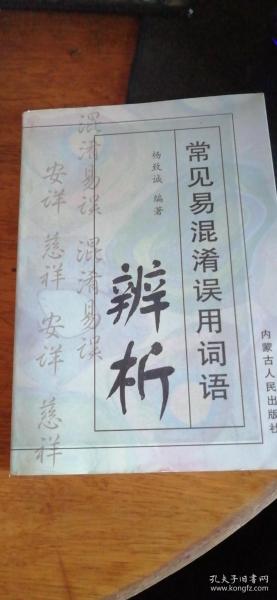 常见易混淆误用词语
辨析
杨致诚 编著
内蒙古人民出版社
混淆易误 混淆易误
安详 慈祥 安详 慈祥
孔夫子旧书网
kongfz.com